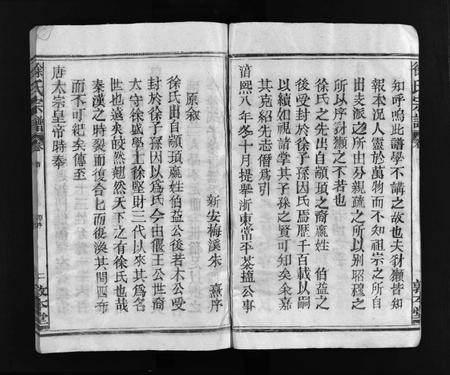 徐氏宗譜
知呼嗚此譜學不講之故也夫豺獺皆知
報本况人靈於萬物而不知祖宗之所自
出支派之所由分親疏之所以别昭穆之
所以序豺獺之不若也
徐氏之先出自顓頊之裔嬴姓 伯益之
後受封於徐子孫因氏焉歷千百載以嗣
以續如視諸掌其子孫之賢可知矣余嘉
其克紹先志僭爲引
淳熙八年冬十月提舉浙東常平茶鹽公事
敦本堂
新安梅溪朱 熹序
原敘
徐氏出自顓頊嬴姓伯益公後若木公受
封於徐子孫因以爲氏今由偃王公世裔
太守徐盛學士徐堅財三代以來其爲名
世也遠矣皎然翹然天下之有徐氏也哉
秦漢之時裂而復合已而復渙其間四布
而不可紀矣傳至
唐太宗皇帝時奉
徐氏宗譜
敦本堂